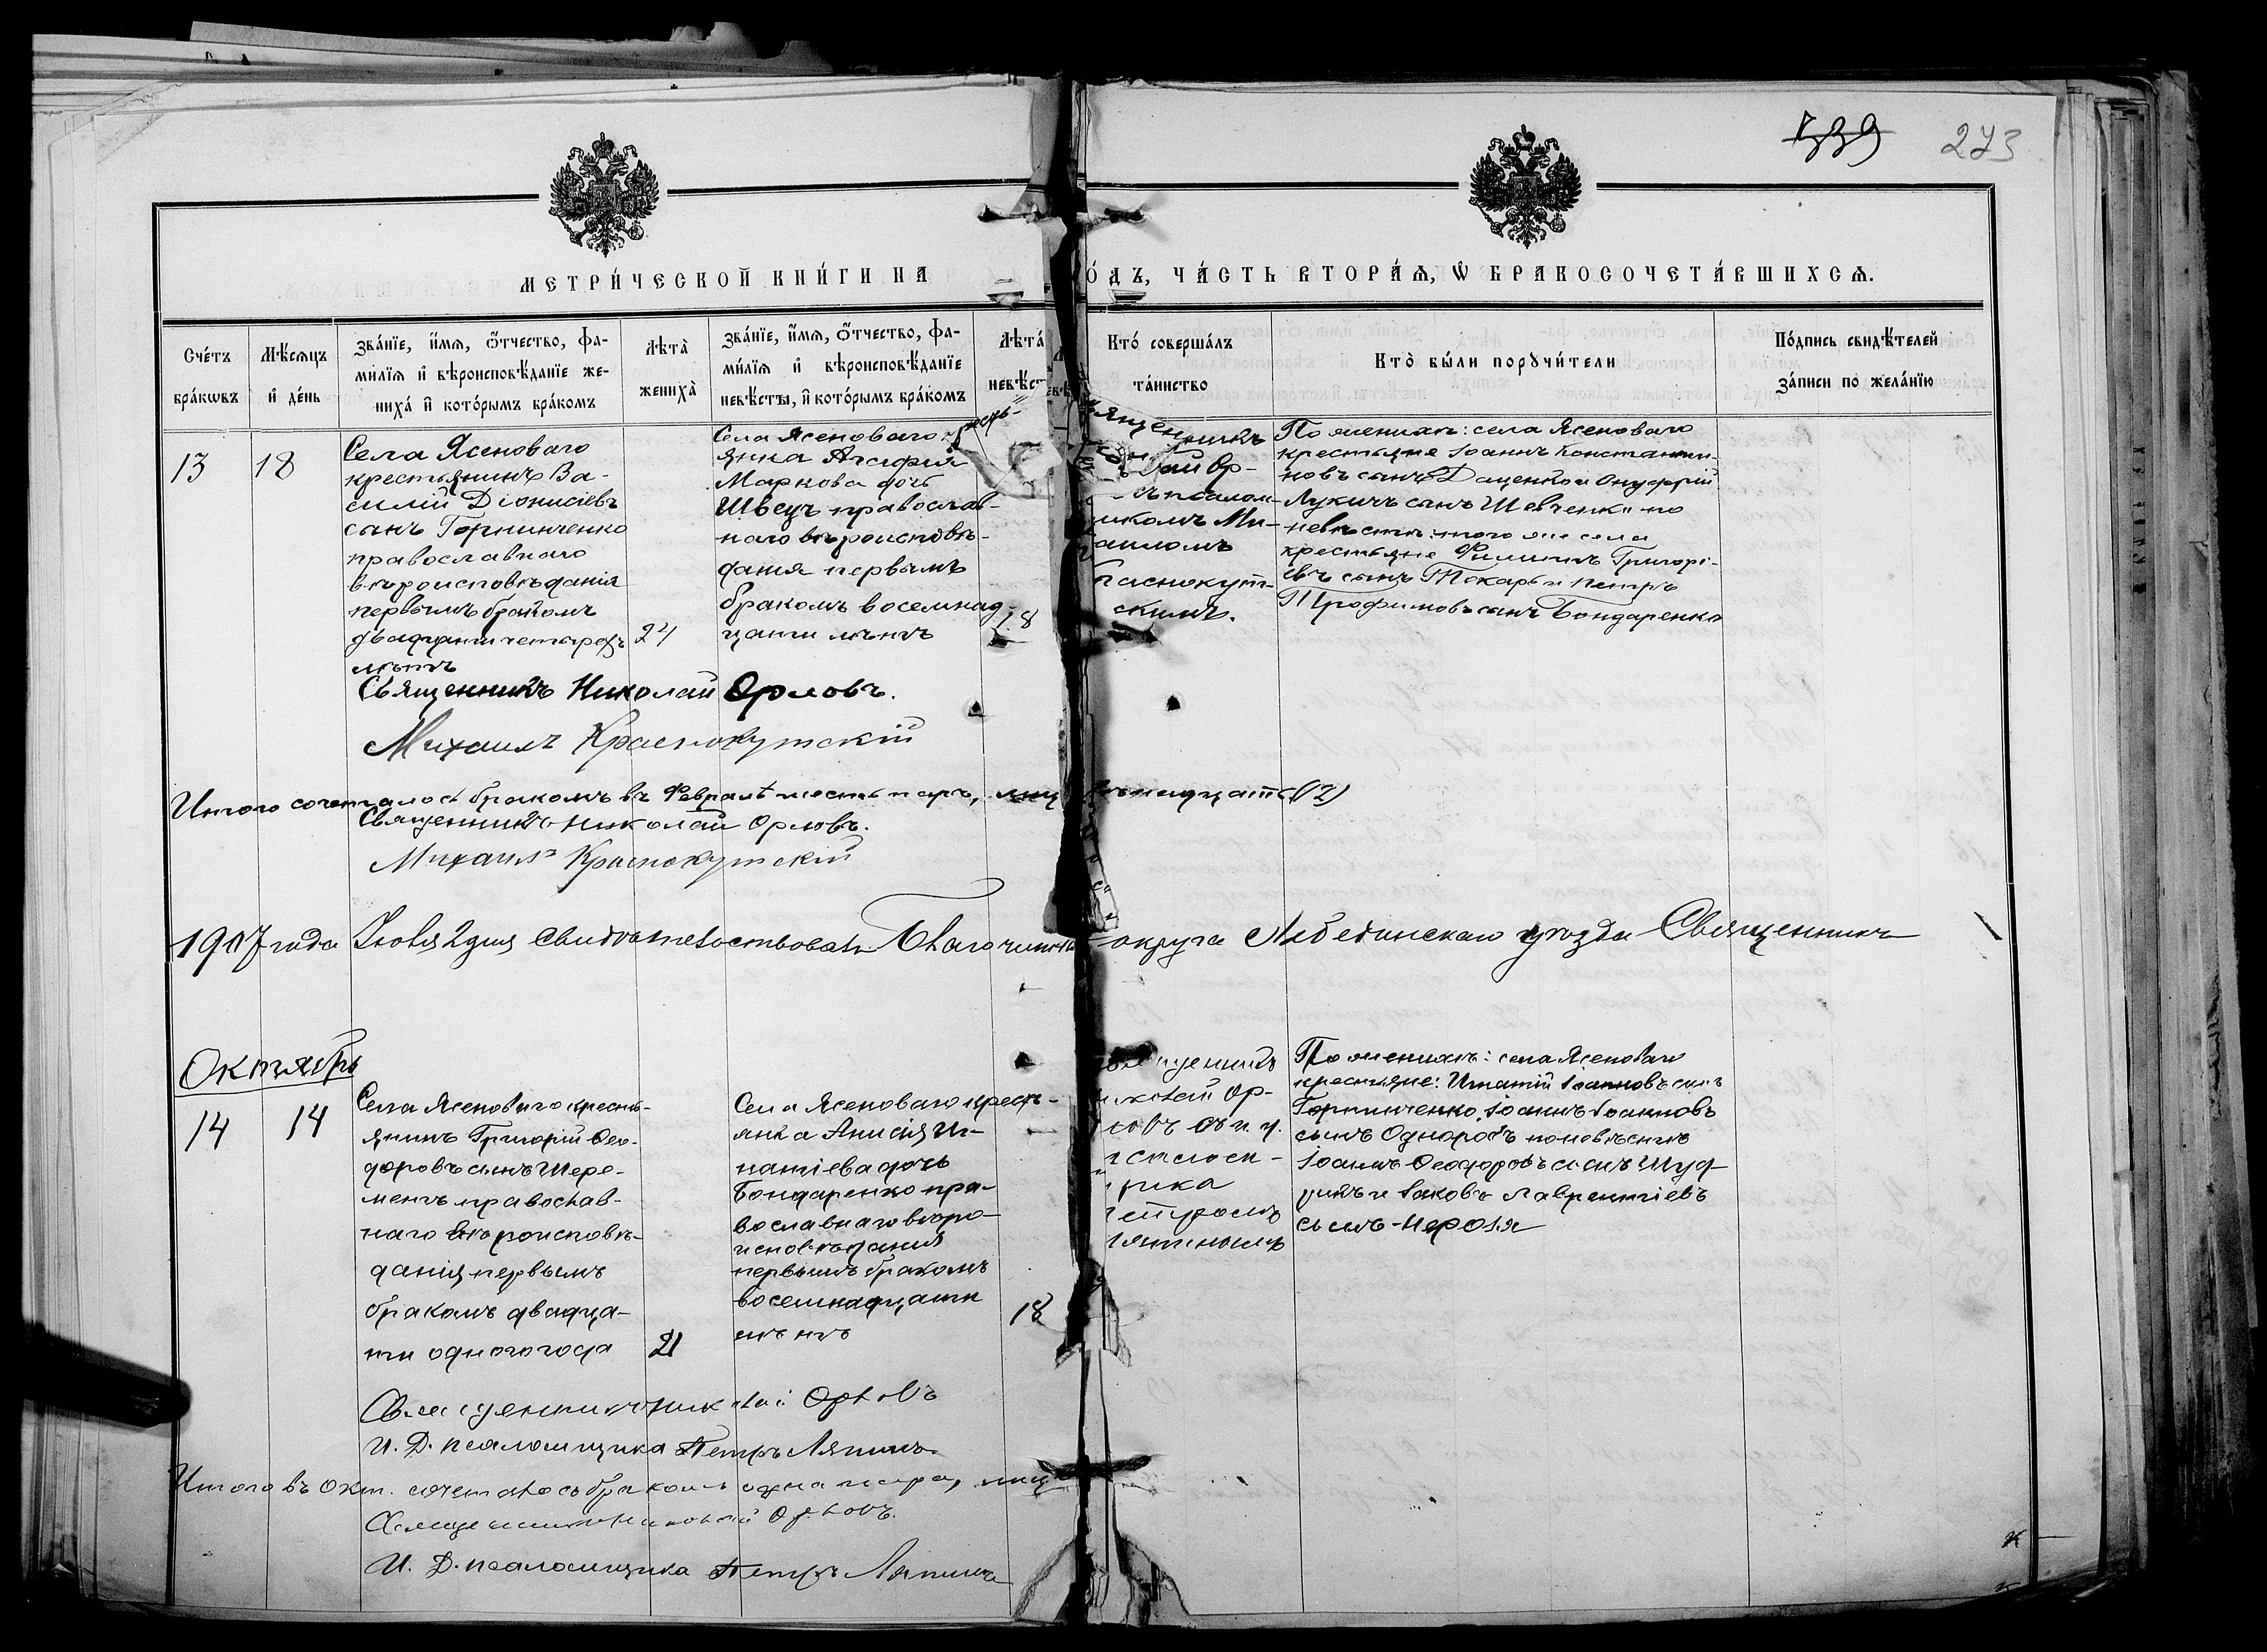 339 273
МЕТРИ́ЧЕСКОЙ КНИ́ГИ НА
ОДЪ, ЧА́СТЬ ВТОРА́Ѧ, Ѡ БРАКОСОЧЕТА́ВШИХСѦ.
Сче́тъ
бра́кѡвъ
Мѣ́сѧцъ
и де́нь
Зва́нїе, и́мѧ, ѻ́тчество, фа-
ми́лїѧ и вѣроисповѣ́данїе же-
ниха̀ и кото́рымъ бра́комъ
Лѣта̀
жениха̀
Зва́нїе, и́мѧ, ѻ́тчество, фа-
ми́лїѧ и вѣроисповѣ́данїе
невѣ́сты, и кото́рымъ бра́комъ
Лѣта̀
невѣ́ст
Кто́ соверша́лъ
та́инство
Кто̀ бы́ли порꙋчи́тели
По́дпись свидѣ́телей
за́писи по жела́нїю
13
18
Села Ясеноваго
крестьянинъ Ва-
силій Діонисіевъ
сынъ Горпинченко
православнаго
вѣроисповѣданія
первымъ бракомъ
двадцати четырехъ
лѣтъ
24
Села Ясеноваго кресть-
янка Агафія
Маркова дочь
Швецъ православ-
наго вѣроисповѣ-
данія первымъ
бракомъ восемнад-
цати лѣтъ
18
ященникъ
лай Ор-
псалом-
икомъ Ми-
аиломъ
раснокут-
скимъ.
По женихѣ: села Ясеноваго
крестьяне Іоаннъ Константи-
новъ сынъ Даценко и Онуфрій
Лукичъ сынъ Шевченко по
невѣстѣ: того же села
крестьяне Филиппъ Григорі-
евъ сынъ Токарь и Петръ
Трофимовъ сынъ Бондаренко
Священникъ Николай Орловъ.
Михаилъ Краснокутскій
Итого сочеталось бракомъ въ Февралѣ шесть паръ, лиц надцать (12)
Священникъ Николай Орловъ.
Михаилъ Краснокутскій
1907 года Іюля 2 дня свидѣтельствовалъ Благочинный округа Лебединскаго уѣзда Священникъ
Октябрь
14
14
Села Ясеноваго кресть-
янинъ Григорій Ѳео-
доровъ сынъ Шере-
метъ православ-
наго вѣроисповѣ-
данія первымъ
бракомъ двадца-
ти одного года
21
Села Ясеноваго кресть-
янка Анисія Иг-
натіева дочь
Бондаренко пра-
вославнаго вѣро-
исповѣданія
первымъ бракомъ
восемнадцати
лѣтъ
18
ященникъ
иколай Ор-
ловъ съ и. д.
псалом-
щика
Петромъ
Ляпинымъ
По женихѣ: села Ясеноваго
крестьяне: Игнатій Іоанновъ сынъ
Горпинченко, Іоаннъ Іоанновъ
сынъ Однорогъ по невѣстѣ
Іоаннъ Ѳеодоровъ сынъ
и Іаковъ Лаврентіевъ
сынъ
Священникъ Николай Орловъ
И. Д. псаломщика Петръ Ляпинъ.
Итого въ Окт. сочеталось бракомъ одна пара, лиц
Священникъ Николай Орловъ.
И. Д. псаломщика Петръ Ляпинъ